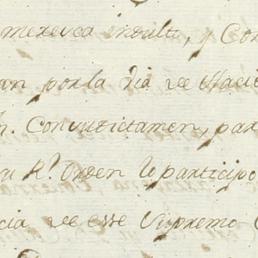 merezca indulto, y Con
an por la via de Haci
n. Con su dictamen, par
u Rl. Orden lo participo
cia de ese Supremo C